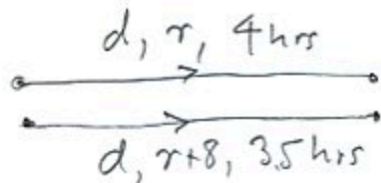 d, r, 4 hrs
d, r+8, 3.5 hrs